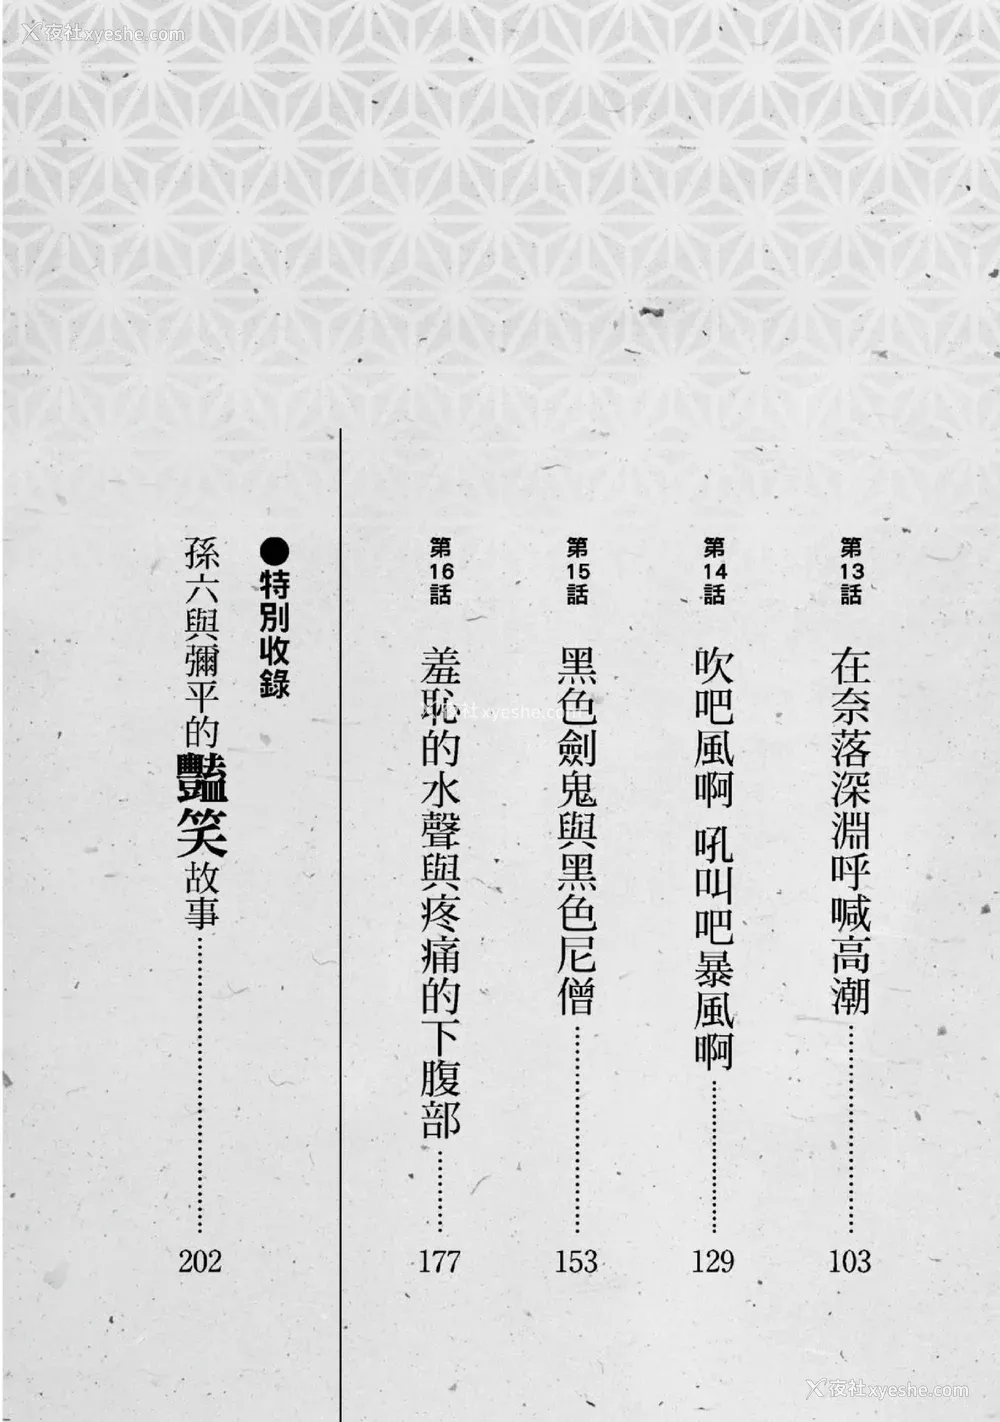 夜社xyeshe.com
第13話 在奈落深淵呼喊高潮……103
第14話 吹吧風啊 吼叫吧暴風啊……129
第15話 黑色劍鬼與黑色尼僧……153
第16話 羞恥的水聲與疼痛的下腹部……177
夜社xyeshe.com
●特別收錄
孫六與彌平的豔笑故事……202
夜社xyeshe.com